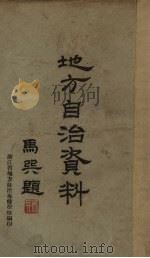 地方自治資料
馬巽題
浙江省地方自治專修學校編印